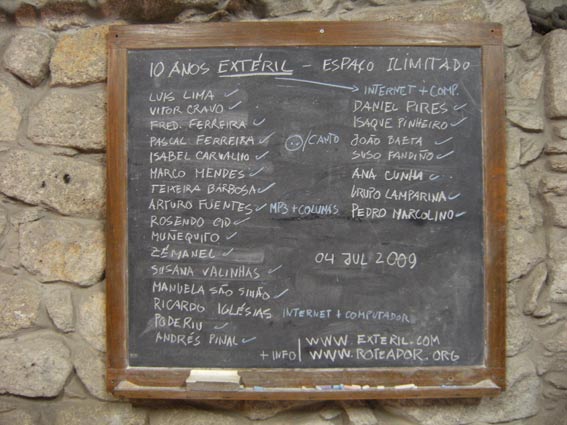 10 ANOS EXTÉRIL - ESPAÇO ILIMITADO
LUIS LIMA ✓
VITOR CRAVO ✓
FRED. FERREIRA ✓
PASCAL FERREIRA ✓ /CANTO
ISABEL CARVALHO ✓
MARCO MENDES ✓
TEIXEIRA BARBOSA ✓
ARTURO FUENTES ✓ MP3 + COLUNAS
ROSENDO CID ✓
MUÑEQUITO ✓
ZÉ MANEL ✓
SUSANA VALINHAS ✓
MANUELA SÃO SIMÃO ✓
RICARDO IGLÉSIAS INTERNET + COMPUTADOR
PODERIU ✓
ANDRÉS PINAL ✓
INTERNET + COMP.
DANIEL PIRES ✓
ISAQUE PINHEIRO ✓
JOÃO BAETA ✓
SUSO FANDIÑO ✓
ANA CUNHA ✓
GRUPO LAMPARINA ✓
PEDRO MARCOLINO ✓
04 JUL 2009
+ INFO | WWW.EXTERIL.COM
WWW.ROTEADOR.ORG